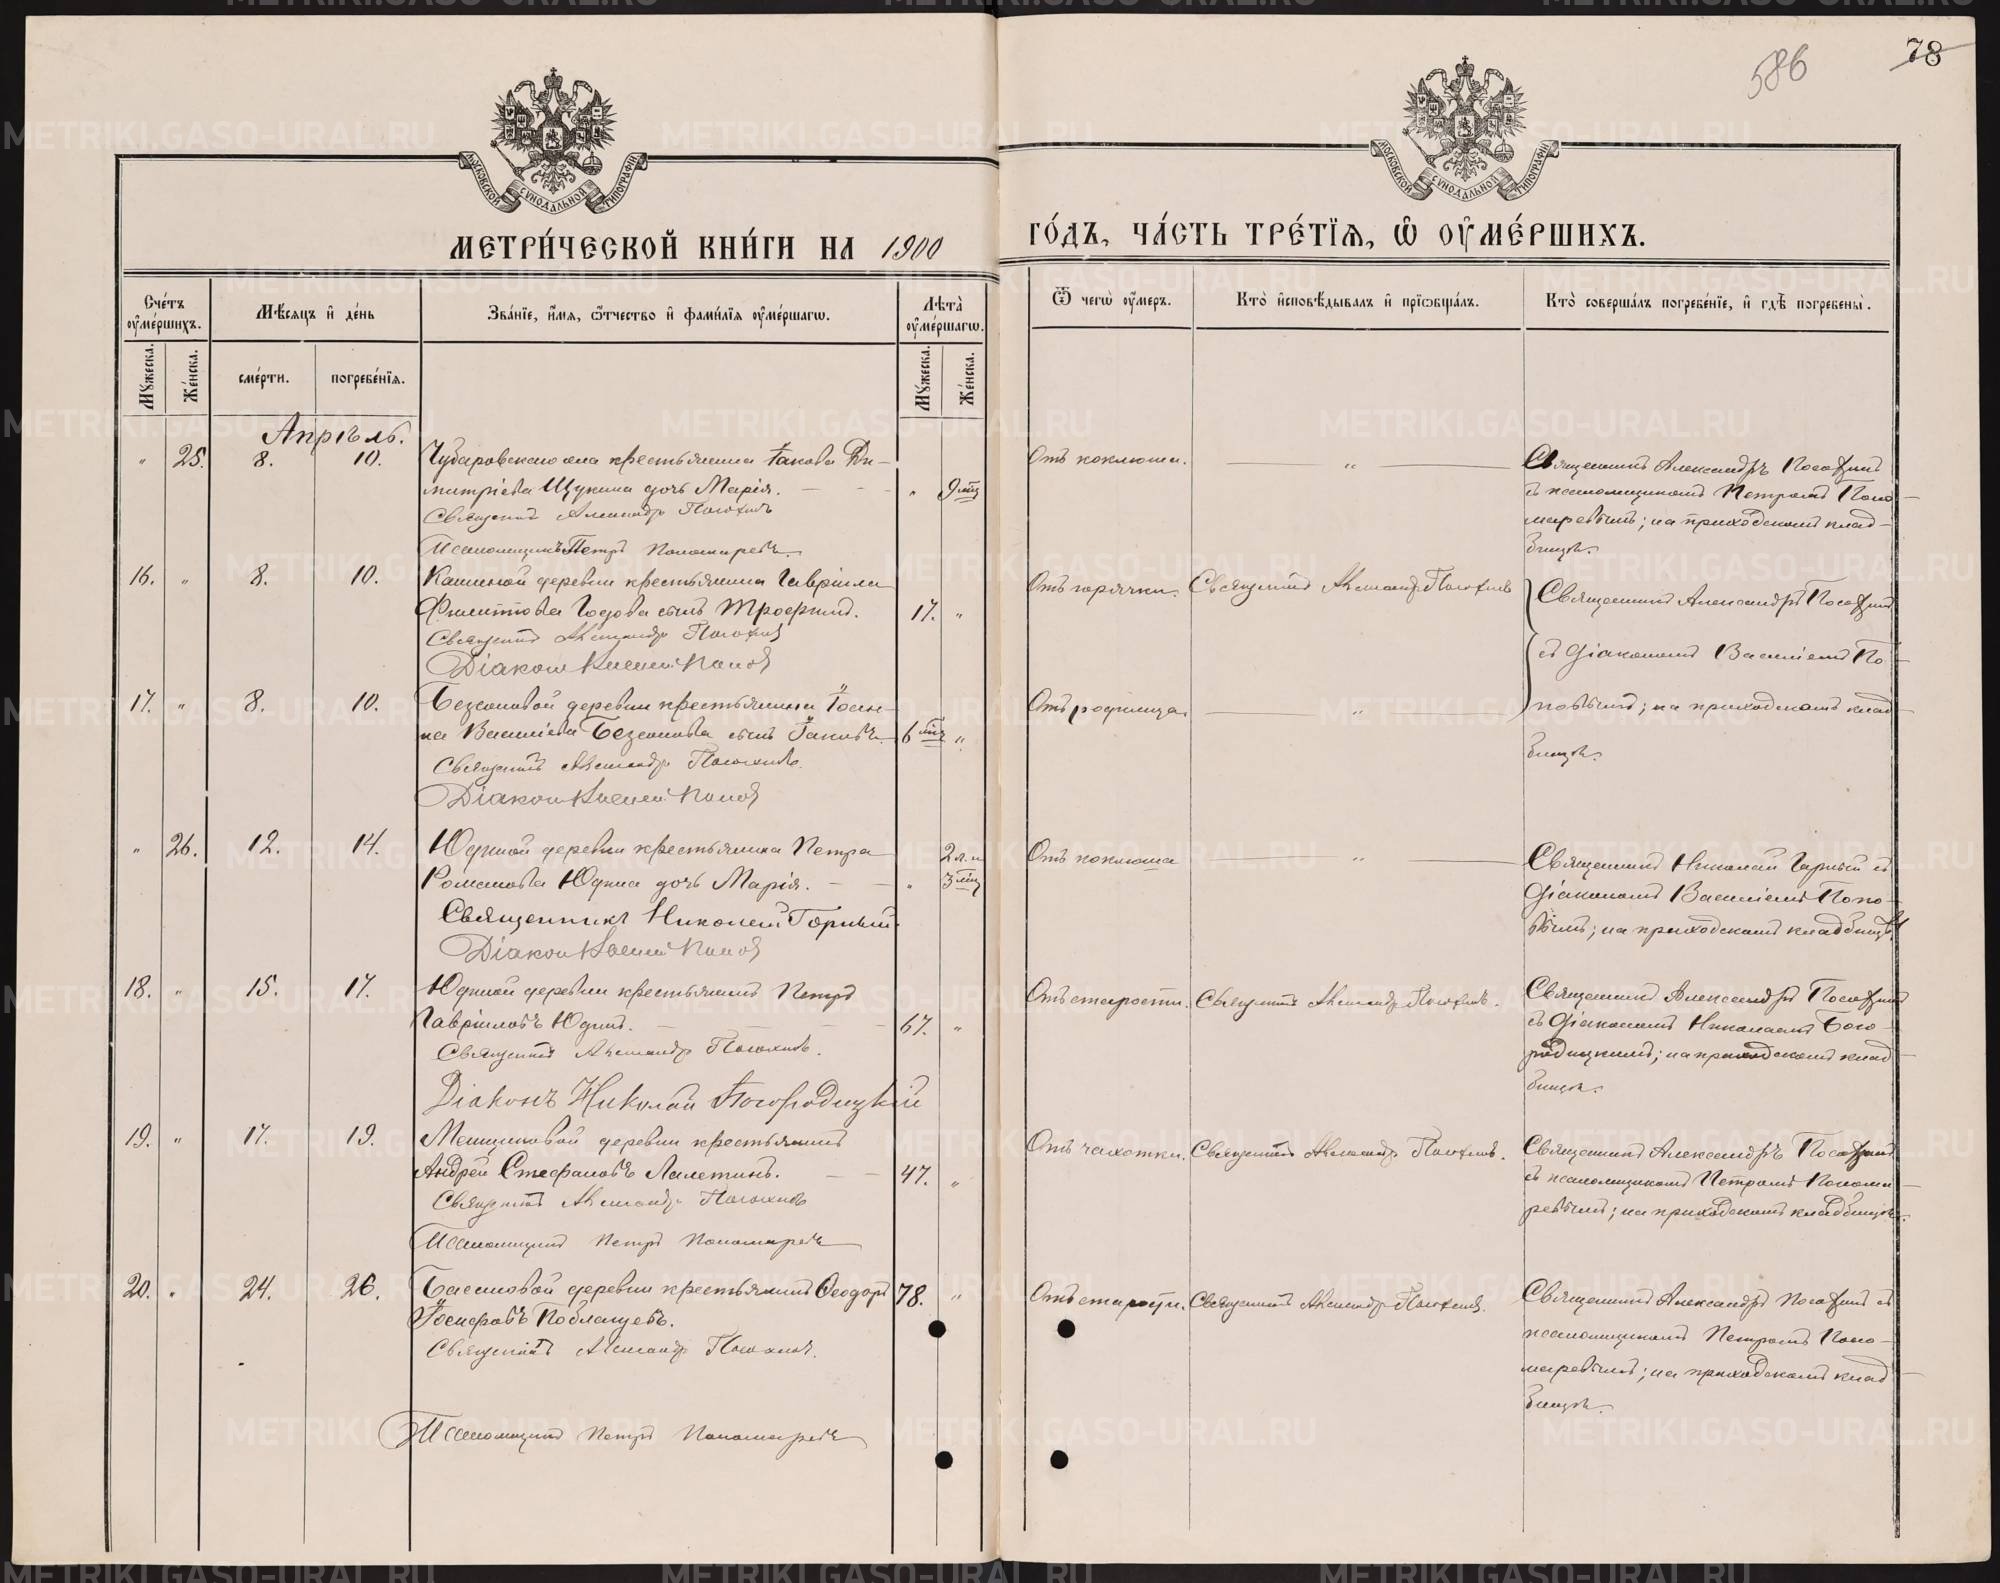 586
78
МОСКОВСКОЙ СѴНОДАЛЬНОЙ ТИПОГРАФІИ
МОСКОВСКОЙ СѴНОДАЛЬНОЙ ТИПОГРАФІИ
МЕТРИ́ЧЕСКОЙ КНИ́ГИ НА 1900
ГО́ДЪ, ЧА́СТЬ ТРЕ́ТЇѦ, Ѡ҆ ОУ҆МЕ́РШИХЪ.
Сче́тъ оу҆ме́ршихъ.
Мѣ́сяцъ и҆ де́нь
Зва́нїе, и҆́мѧ, ѻ҆́тчество и҆ фами́лїѧ оу҆ме́ршагѡ.
Лѣта̀ оу҆ме́ршагѡ.
Ѿ чегѡ̀ оу҆́меръ.
Кто̀ и҆сповѣ́дывалъ и҆ прїѡбща́лъ.
Кто̀ соверша́лъ погребе́нїе, и҆ гдѣ̀ погребены̀.
Мꙋ́жеска.
Же́нска.
сме́рти.
погребе́нїѧ.
Мꙋ́жеска.
Же́нска.
Апрѣль.
" 25. 8. 10. Чубаровскаго села крестьянина Іакова Ди-
митріева Щукина дочь Марія. " 9 мѣц
Священникъ Александръ Посохинъ
Псаломщикъ Петръ Пономаревъ
Отъ коклюша. "
Священникъ Александръ Посохинъ
съ псаломщикомъ Петромъ Поно-
маревымъ; на приходскомъ клад-
бищѣ.
16. " 8. 10. деревни крестьянина Гавріила
сынъ Трофимъ. 17. "
Священникъ Александръ Посохинъ
Діаконъ Василій Поповъ
Отъ горячки. Священникъ Александръ Посохинъ
Священникъ Александръ Посохинъ
съ діакономъ Василіемъ По-
повымъ; на приходскомъ клад-
бищѣ.
17. " 8. 10. Безсоновой деревни крестьянина Іоан-
на Василіева Безсонова сынъ Іаковъ. 6 мѣц "
Священникъ Александръ Посохинъ.
Діаконъ Василій Поповъ
Отъ родимца "
" 26. 12. 14. Юдиной деревни крестьянина Петра
Романова Юдина дочь Марія. " 2 л. и 3 мѣц
Священникъ Николай Горный.
Діаконъ Василій Поповъ
Отъ коклюша "
Священникъ Николай Горный съ
діакономъ Василіемъ Попо-
вымъ; на приходскомъ кладбищѣ.
18. " 15. 17. Юдиной деревни крестьянинъ Петръ
Гавріиловъ Юдинъ. 67. "
Священникъ Александръ Посохинъ.
Діаконъ Николай Богородицкій
Отъ старости. Священникъ Александръ Посохинъ.
Священникъ Александръ Посохинъ
съ діакономъ Николаемъ Бого-
родицкимъ; на приходскомъ клад-
бищѣ.
19. " 17. 19. деревни крестьянинъ
Андрей Стефановъ Лалетинъ. 47. "
Священникъ Александръ Посохинъ
Псаломщикъ Петръ Пономаревъ
Отъ чахотки. Священникъ Александръ Посохинъ.
Священникъ Александръ Посохинъ
съ псаломщикомъ Петромъ Понома-
ревымъ; на приходскомъ кладбищѣ.
20. " 24. 26. деревни крестьянинъ Ѳеодоръ 78. "
Іосифовъ
Священникъ Александръ Посохинъ.
Псаломщикъ Петръ Пономаревъ
Отъ старости. Священникъ Александръ Посохинъ.
Священникъ Александръ Посохинъ съ
псаломщикомъ Петромъ Поно-
маревымъ; на приходскомъ клад-
бищѣ.
METRIKI.GASO-URAL.RU